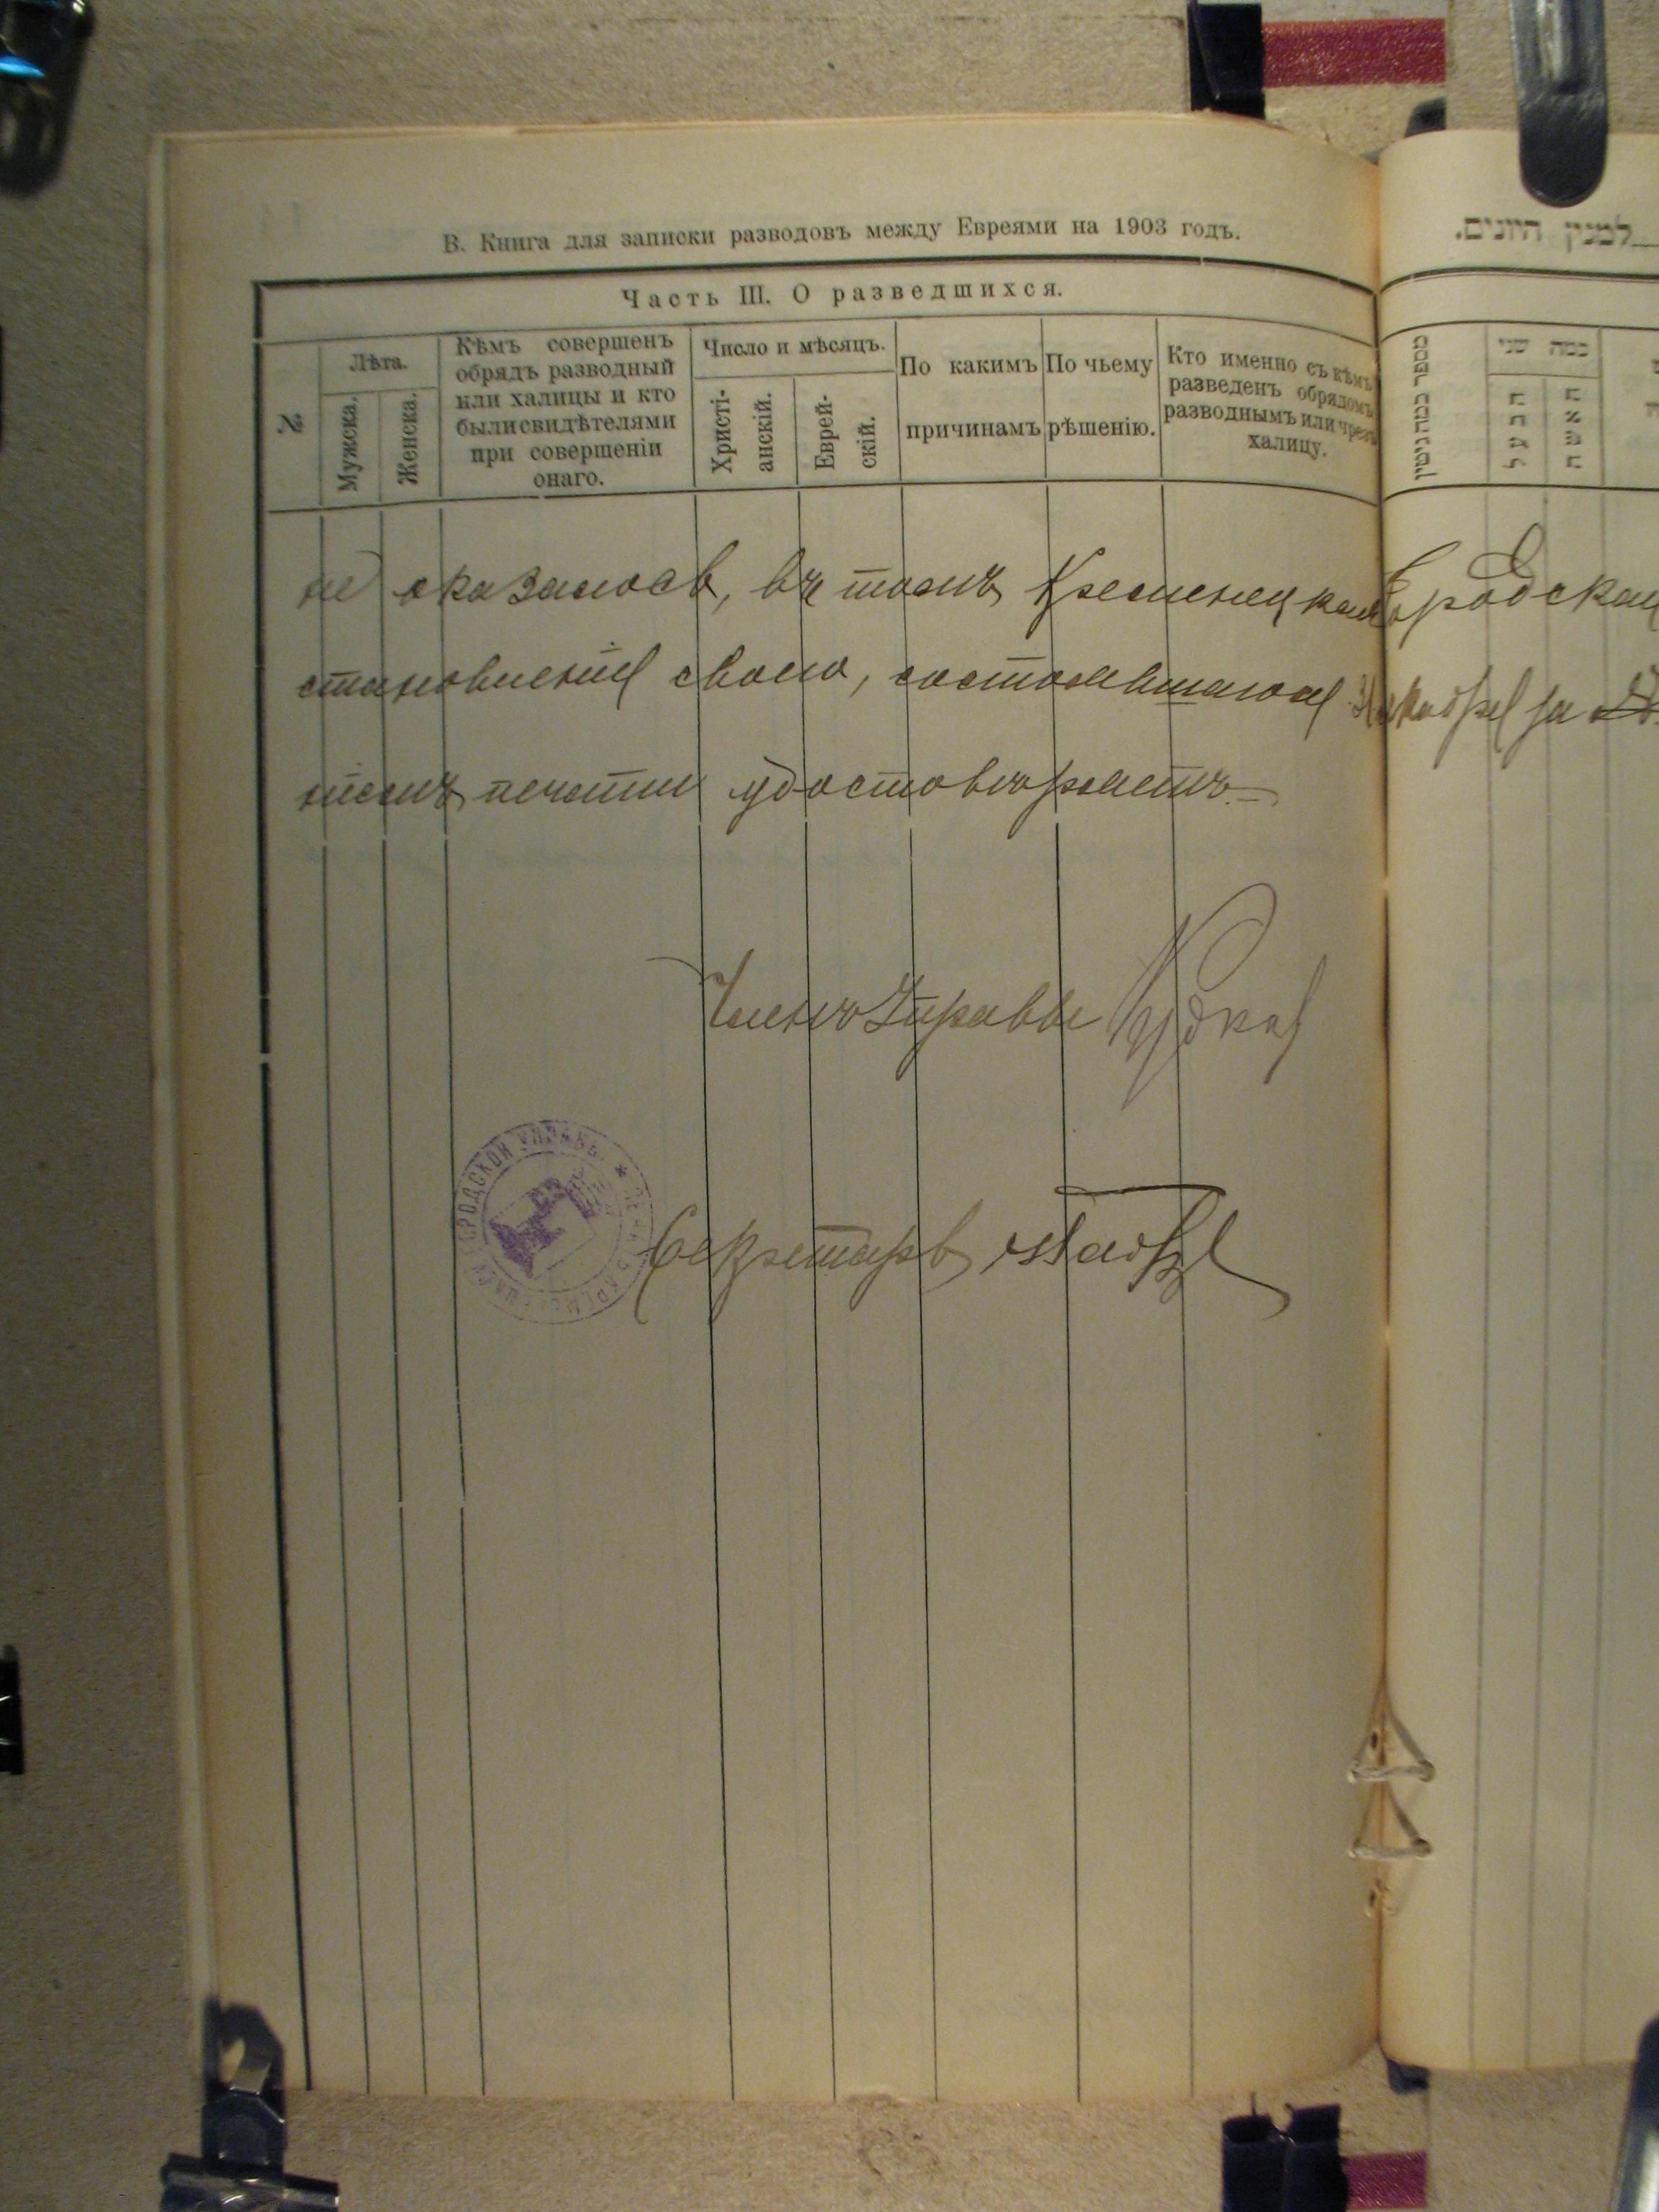 В. Книга для записки разводовъ между Евреями на 1903 годъ.
Часть III. О разведшихся.
№
Лѣта.
Мужска.
Женска.
Кѣмъ совершенъ
обрядъ разводный
или халицы и кто
были свидѣтелями
при совершеніи
онаго.
Число и мѣсяцъ.
Христі-
анскій.
Еврей-
скій.
По какимъ
причинамъ
По чьему
рѣшенію.
Кто именно съ кѣмъ
разведенъ обрядомъ
разводнымъ или чрезъ
халицу.
не оказалось, въ томъ Кременецкая Городская
становленія своего, состоявшагося Декабря за
ніемъ печати удостовѣряетъ.
Членъ Управы
Секретарь
ГОРОДСКОЙ УПРАВЫ
למנין היונים.
מספר כמה גיטין
כמה שני
הבעל
האשה